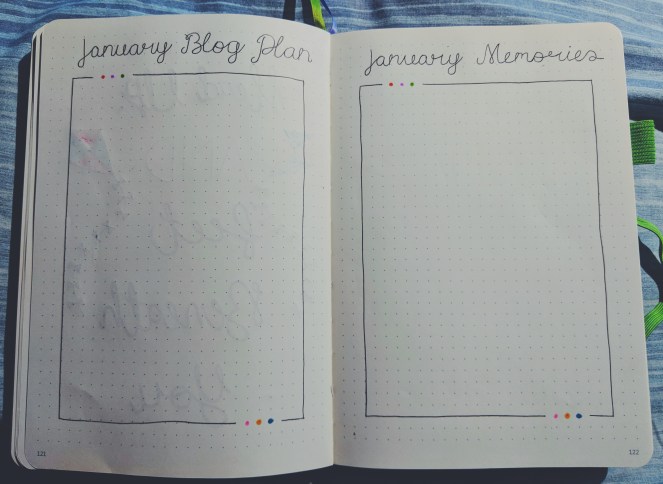 January Blog Plan
January Memories
121
122